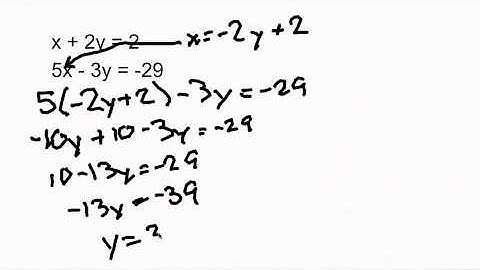 x + 2y = 2
x=-2y+2
5x - 3y = -29
5(-2y+2)-3y=-29
-10y+10-3y=-29
10-13y=-29
-13y=-39
y=3